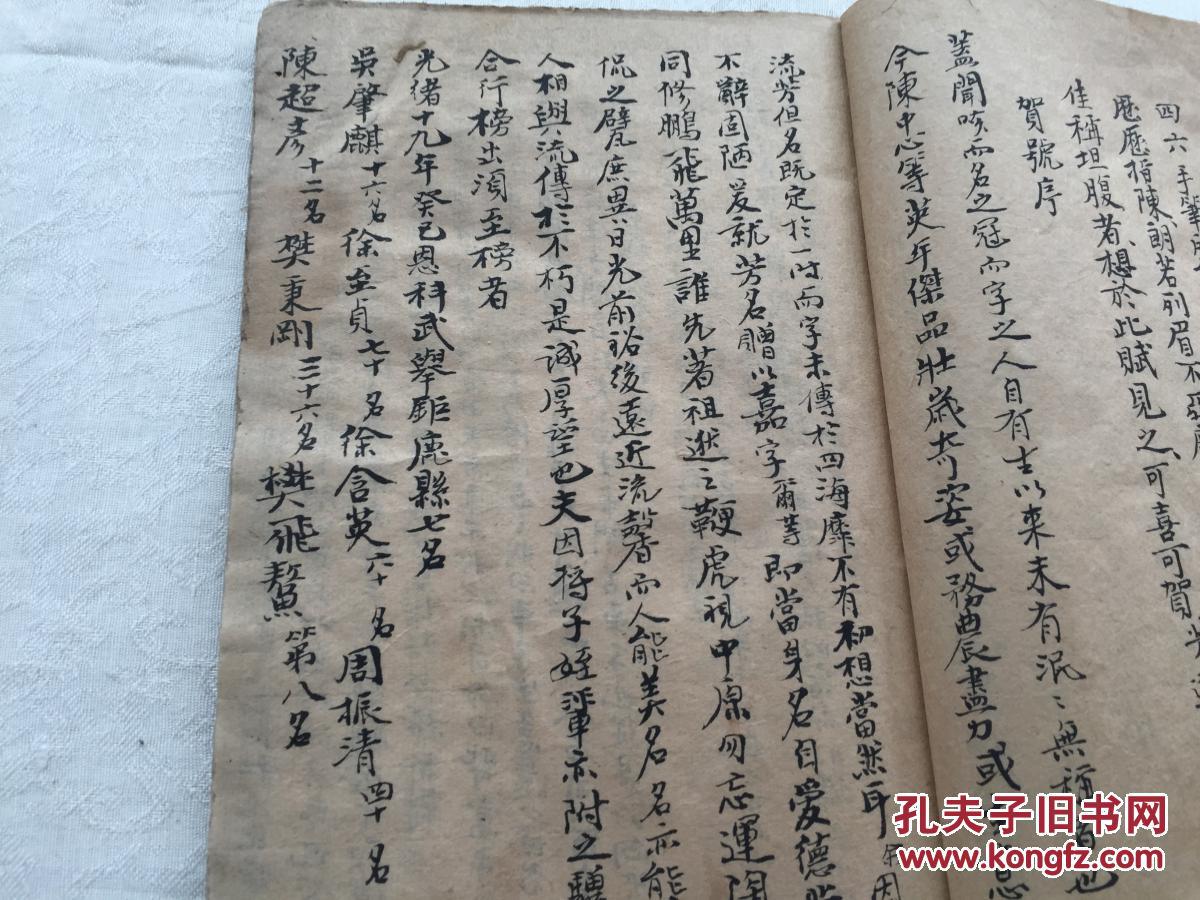 四六手
歷歷將陳朗若列眉不
佳稱坦腹者想於此賦見之可喜可賀
賀號序
蓋聞咳而名之冠而字之人自有生以來未有泯〻無稱者也
今陳中心等英年傑品壯歲奇姿或務農盡力或
流芳但名既定於一时而字未傳於四海靡不有初想當然耳余因
不辭固陋爰就芳名贈以嘉字爾等即當身名自愛德
同修鵬飛萬里誰先著祖逖之鞭虎視中原勿忘運陶
侃之甓庶異日光前裕後遠近流馨而人能美名名亦能
人相與流傳於不朽是誠厚望也夫因將子姪輩亦附之驥
合行榜出須至榜者
光緒十九年癸巳恩科武舉鉅鹿縣七名
吳肇麒十六名徐金貞七十名徐含英六十名周振清四十名
陳超彥十二名樊秉剛三十六名樊飛鰲第八名
孔夫子旧书网
www.kongfz.com